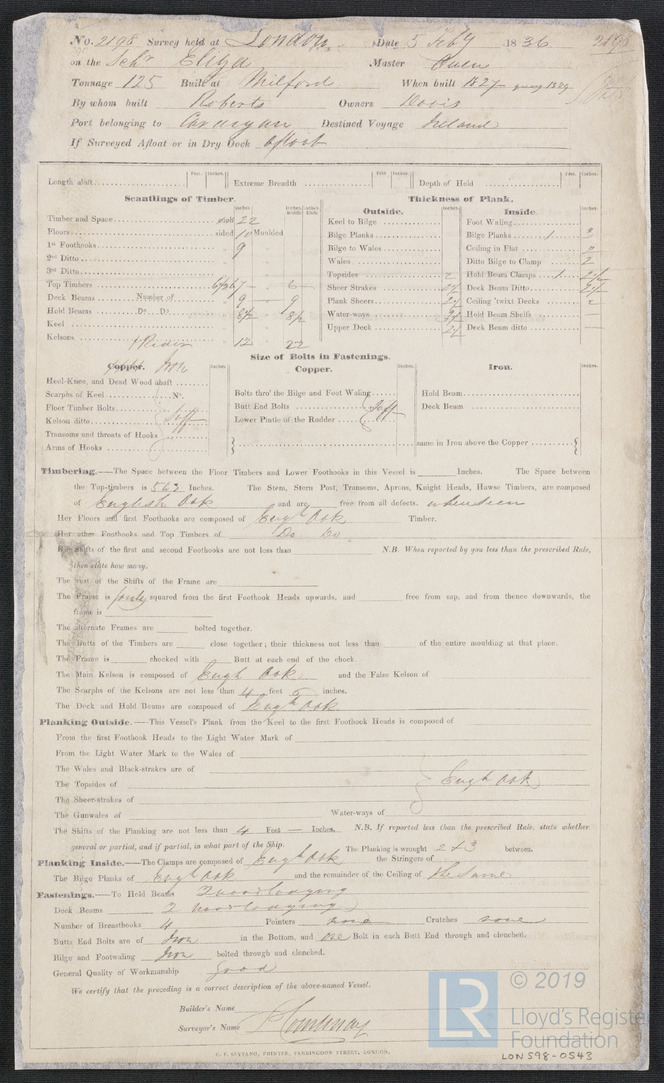 No. 2198 Survey held at London Date 5 Feby 1836 2198
on the Schr Eliza Master Owen
Tonnage 125 Built at Milford When built 1827
By whom built Roberts Owners Davis
Port belonging to Cardigan Destined Voyage Ireland
If Surveyed Afloat or in Dry Dock Afloat
Length aloft Feet. Inches. Extreme Breadth Feet. Inches. Depth of Hold Feet. Inches.
Scantlings of Timber. Thickness of Plank.
Outside. Inside.
Timber and Space 22 Keel to Bilge Foot Waling
Floors sided 10 Moulded Bilge Planks Bilge Planks
1st Foothooks 9 Bilge to Wales Ceiling in Flat
2nd Ditto Wales Ditto Bilge to Clamp 2
3rd Ditto Topsides Hold Beam Clamps
Top Timbers Sheer Strakes Deck Beam Ditto
Deck Beams Number of 9 9 Plank Sheers Ceiling 'twixt Decks
Hold Beams Do. Do. Water-ways Hold Beam Shelfs
Keel Upper Deck Deck Beam ditto
Kelsons 12 22
Size of Bolts in Fastenings.
Copper. Iron Copper. Iron.
Heel-Knee, and Dead Wood abaft Bolts thro' the Bilge and Foot Waling Hold Beam
Scarphs of Keel No. Butt End Bolts Deck Beam
Floor Timber Bolts Lower Pintle of the Rudder
Kelson ditto
Transoms and throats of Hooks same in Iron above the Copper
Arms of Hooks
Timbering.—The Space between the Floor Timbers and Lower Foothooks in this Vessel is Inches. The Space between
the Top-timbers is 5 & 3 Inches. The Stem, Stern Post, Transoms, Aprons, Knight Heads, Hawse Timbers, are composed
of English Oak and are free from all defects. when seen
Her Floors and first Foothooks are composed of Engh Oak Timber.
Her other Foothooks and Top Timbers of Do Do
The Shifts of the first and second Foothooks are not less than N.B. When reported by you less than the prescribed Rule,
then state how many.
The rest of the Shifts of the Frame are
The Frame is squared from the first Foothook Heads upwards, and free from sap, and from thence downwards, the
frame is
The alternate Frames are bolted together.
The Butts of the Timbers are close together; their thickness not less than of the entire moulding at that place.
The Frame is chocked with Butt at each end of the chock.
The Main Kelson is composed of Engh Oak and the False Kelson of
The Scarphs of the Kelsons are not less than 4 feet inches.
The Deck and Hold Beams are composed of Engh Oak
Planking Outside.—This Vessel's Plank from the Keel to the first Foothook Heads is composed of
From the first Foothook Heads to the Light Water Mark of
From the Light Water Mark to the Wales of
The Wales and Black-strakes are of
The Topsides of Engh Oak
The Sheer-strakes of
The Gunwales of Water-ways of
The Shifts of the Planking are not less than 4 Feet — Inches. N.B. If reported less than the prescribed Rule, state whether
general or partial, and if partial, in what part of the Ship. The Planking is wrought 2 & 3 between.
Planking Inside.—The Clamps are composed of Engh Oak the Stringers of
The Bilge Planks of Engh Oak and the remainder of the Ceiling of the Same
Fastenings.—To Hold Beams 2 wood lodging
Deck Beams 2 wood lodging
Number of Breasthooks 4 Pointers none Crutches none
Butts End Bolts are of Iron in the Bottom, and one Bolt in each Butt End through and clenched.
Bilge and Footwaling Iron bolted through and clenched.
General Quality of Workmanship Good
We certify that the preceding is a correct description of the above-named Vessel.
Builder's Name
Surveyor's Name Courtenay
C. F. SEYFANG, PRINTER, FARRINGDON STREET, LONDON.
LR © 2019
Lloyd's Register
Foundation
LON598-0543